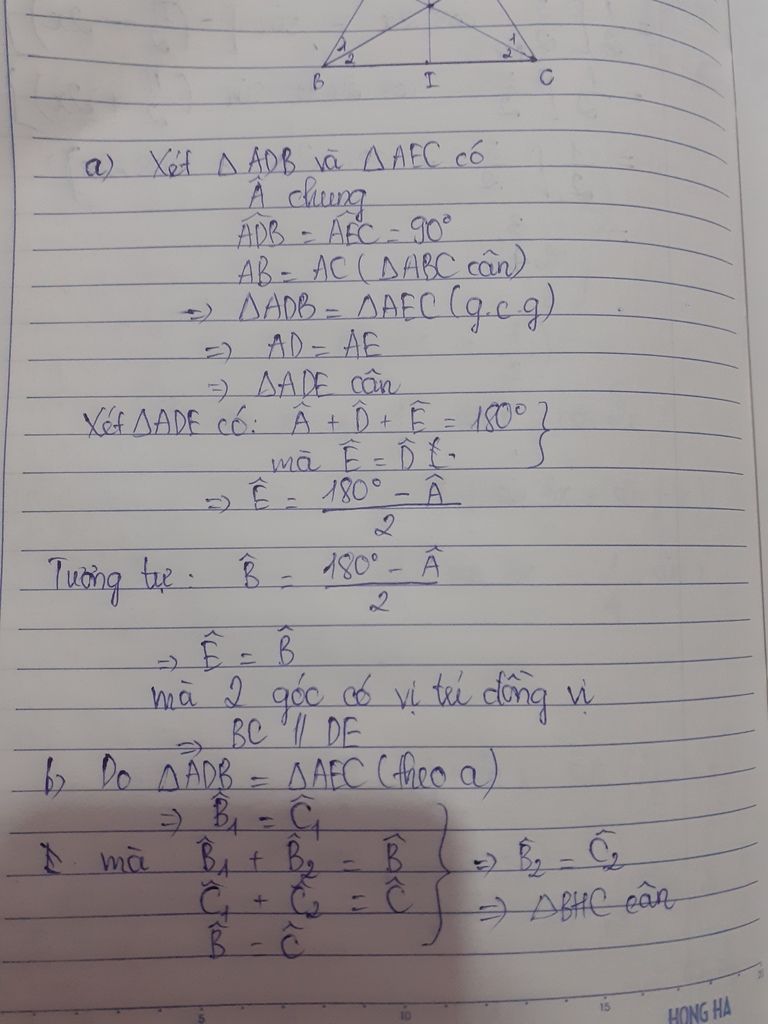 1 2 1 2
B I C
a) Xét △ADB và △AEC có
Â chung
ADB̂ = AÊC = 90°
AB = AC (△ABC cân)
=> △ADB = △AEC (g.c.g)
=> AD = AE
=> △ADE cân
Xét △ADE có: Â + D̂ + Ê = 180° }
mà Ê = D̂
=> Ê = (180° - Â) / 2
Tương tự: B̂ = (180° - Â) / 2
=> Ê = B̂
mà 2 góc có vị trí đồng vị
=> BC // DE
b) Do △ADB = △AEC (theo a)
=> B̂1 = Ĉ1
mà B̂1 + B̂2 = B̂ } => B̂2 = Ĉ2
Ĉ1 + Ĉ2 = Ĉ => △BHC cân
B̂ = Ĉ
5 10 15
HONG HA